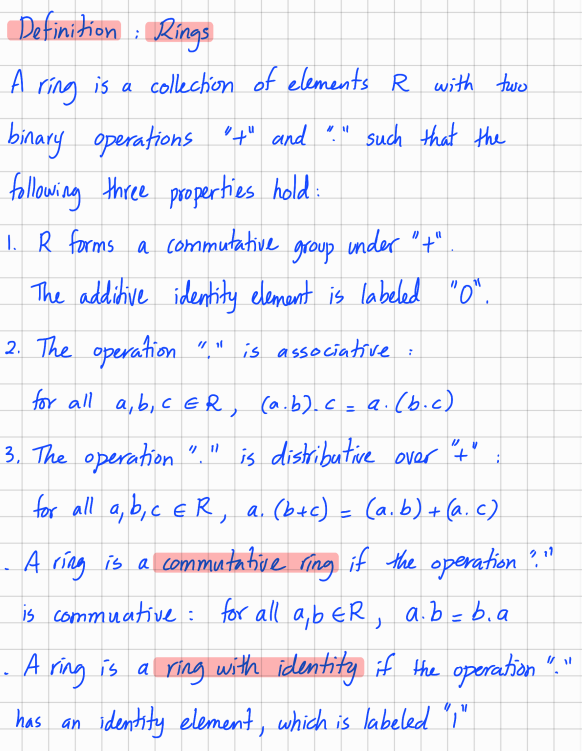 Definition : Rings
A ring is a collection of elements R with two
binary operations "+" and "." such that the
following three properties hold:
1. R forms a commutative group under "+".
The additive identity element is labeled "0".
2. The operation "." is associative :
for all a,b,c ∈ R, (a.b).c = a.(b.c)
3. The operation "." is distributive over "+" :
for all a,b,c ∈ R, a.(b+c) = (a.b)+(a.c)
. A ring is a commutative ring if the operation "."
is commuative : for all a,b ∈ R, a.b = b.a
. A ring is a ring with identity if the operation "."
has an identity element, which is labeled "1"